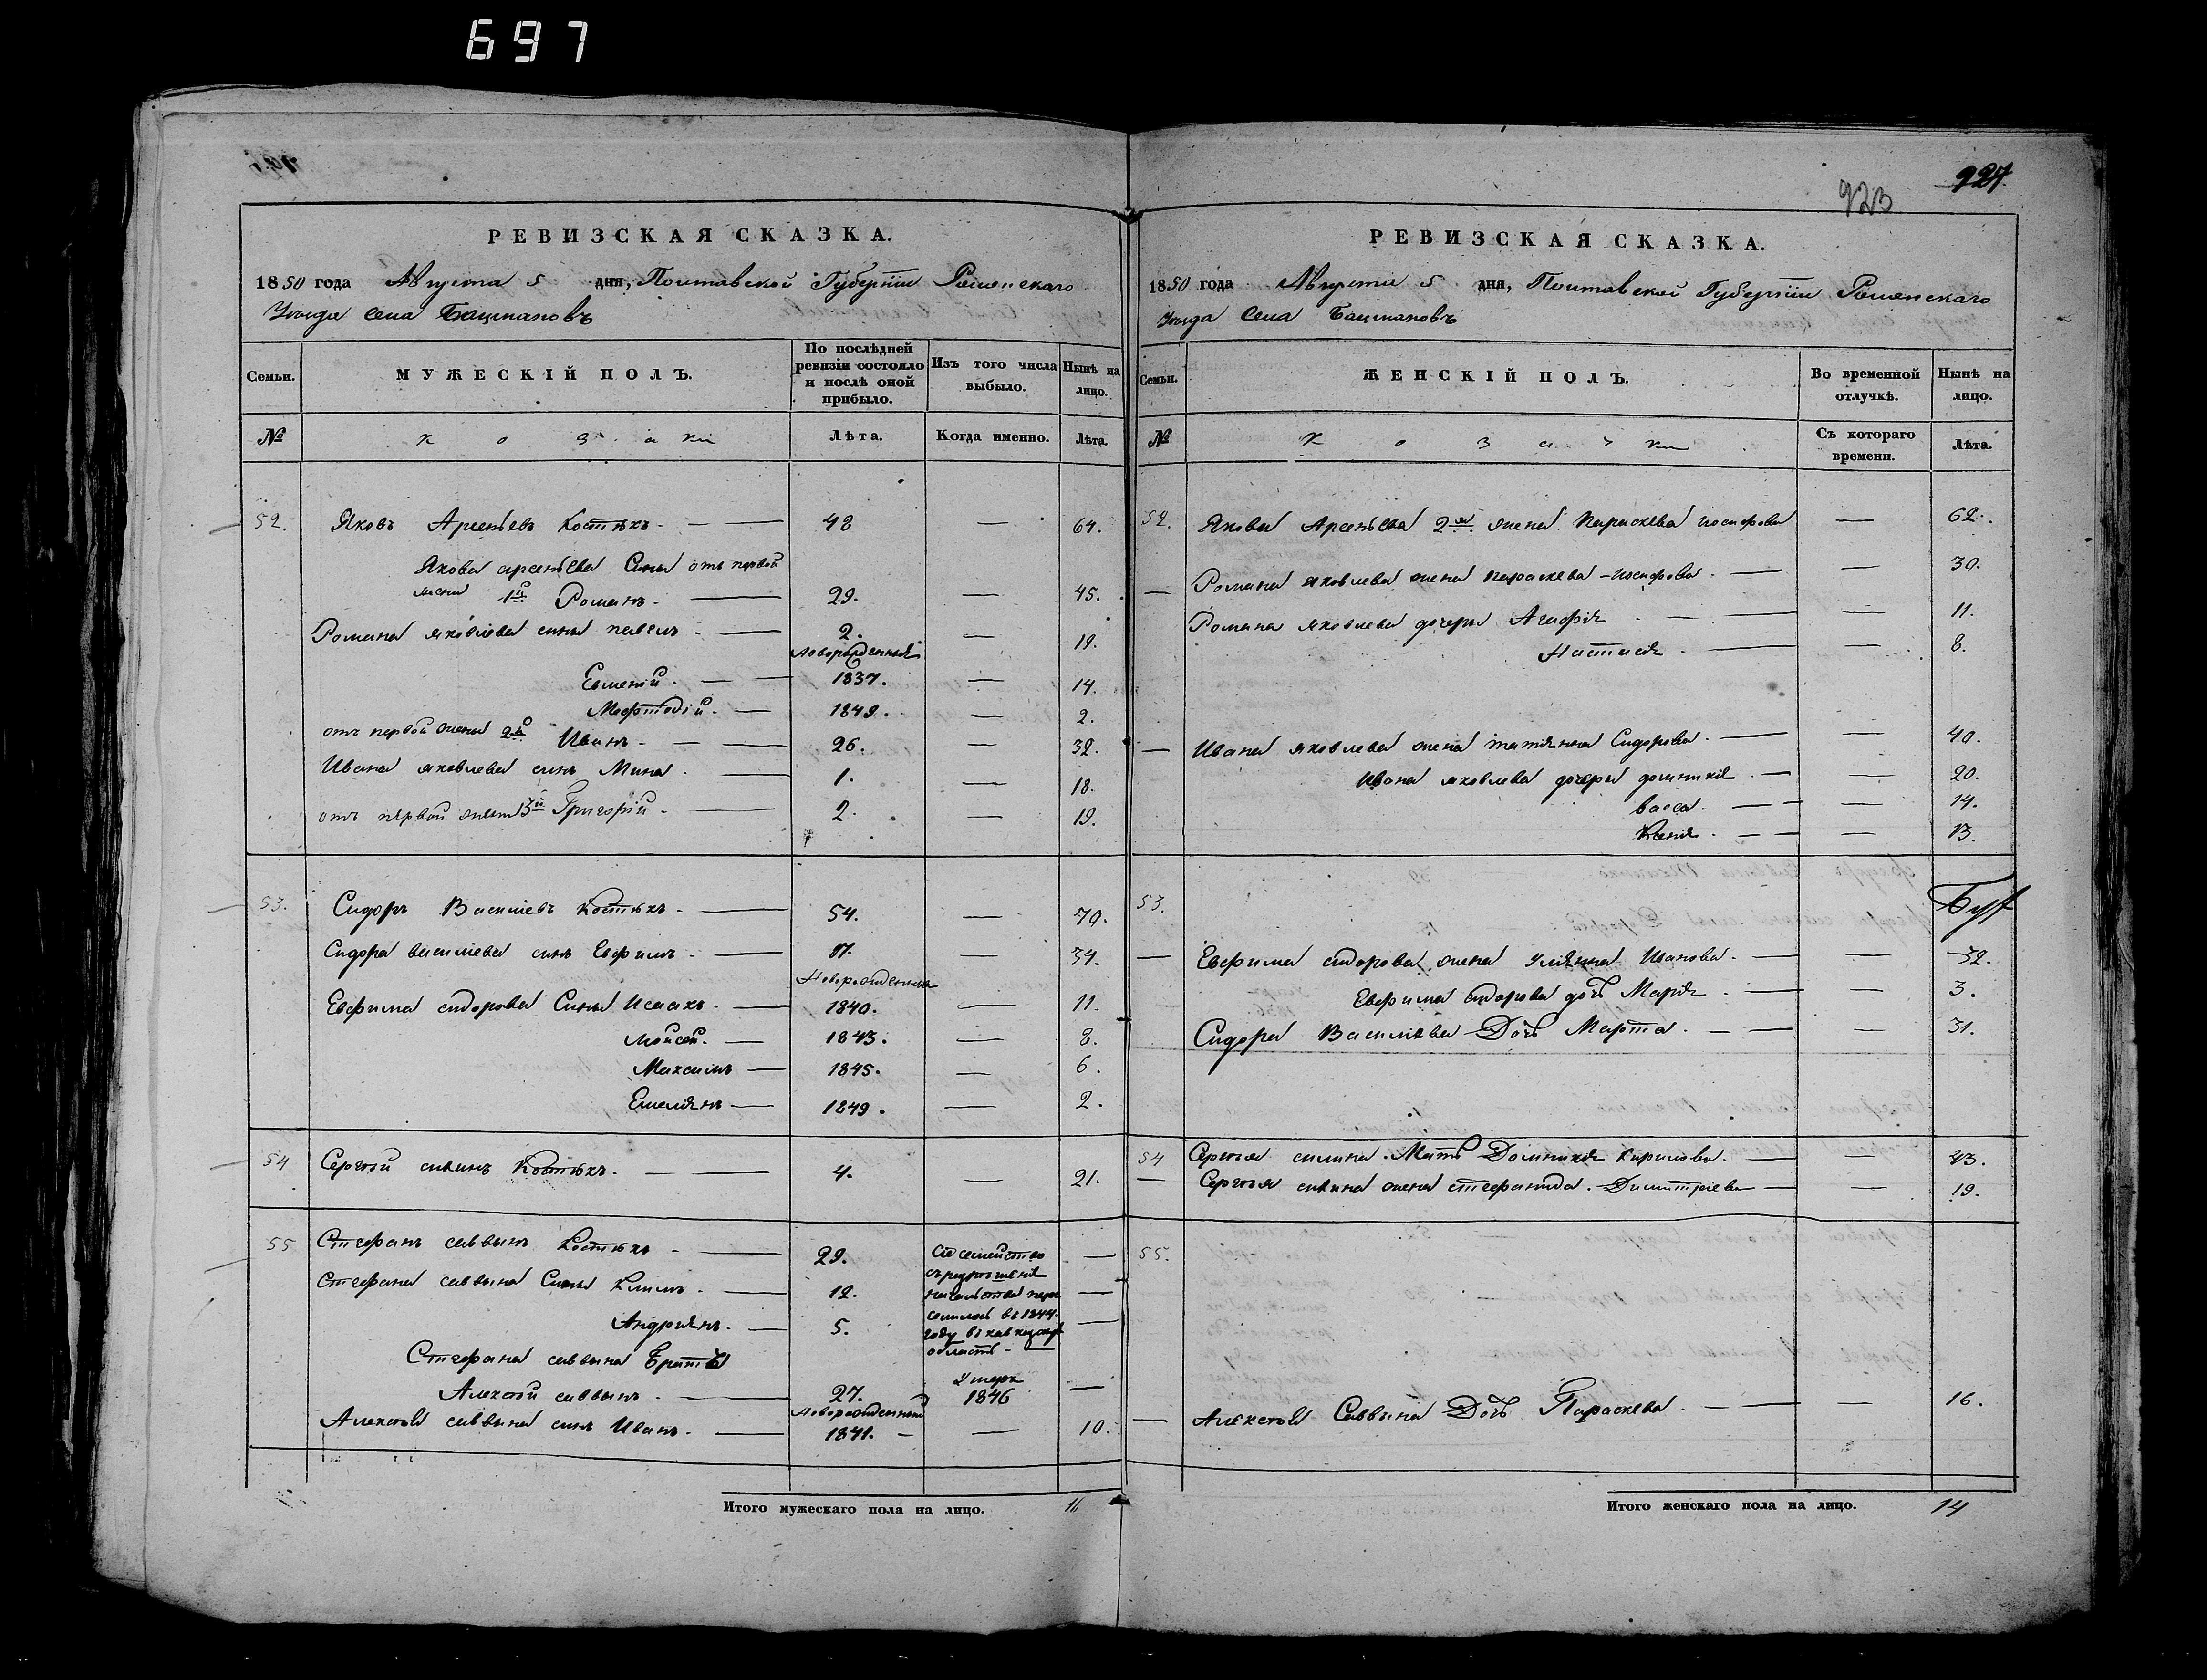 697
923 927.
РЕВИЗСКАЯ СКАЗКА.
1850 года Августа 5 дня, Полтавской Губернiи Роменскаго
Уѣзда Села Бацмановъ
Семьи. МУЖЕСКIЙ ПОЛЪ. По послѣдней ревизiи состояло и послѣ оной прибыло. Изъ того числа выбыло. Нынѣ на лицо.
№ Козаки Лѣта. Когда именно. Лѣта.
52. Яковъ Арсеньевъ Костюкъ - — 48 — 64.
Якова арсеньева Сыны отъ первой
жены 1й Романъ - — 29. — 45.
Романа яковлева сынъ павелъ - — 2. — 19.
новорожденныя
Евменiй. - — 1837. — 14.
Мефтодiй. - — 1849. — 2.
отъ первой жены 2й Иванъ - — 26. — 32.
Ивана яковлева сынъ Мина. — 1. — 18.
отъ первой жены 3й Григорiй - — 2. — 19.
53. Сидоръ Василiевъ Костюкъ - — 54. — 70.
Сидора василiева сынъ Евфимъ - — 17. — 34.
Новорожденныя
Евфима сидорова Сыны Исаакъ - — 1840. — 11.
Мойсей. — 1843. — 8.
Максимъ — 1845. — 6.
Емелiянъ — 1849. — 2.
54 Сергѣй силинъ Костюкъ. - — 4. — 21.
55 Стефанъ саввинъ Костюкъ - — 29. —
Сiе семейство съ разрѣшенiя начальства пере селилось въ 1844. году въ кавказскую область -
Стефана саввина Сыны Климъ - — 12. —
Андрiянъ. — 5. —
Стефана саввина Братъ
Алексѣй саввинъ. — 27. Умеръ 1846 —
новорожденный
Алексѣя саввина сынъ Иванъ. — 1841. - — 10.
Итого мужескаго пола на лицо.
РЕВИЗСКАЯ СКАЗКА.
1850 года Августа 5 дня, Полтавской Губернiи Роменскаго
Уѣзда Села Бацмановъ
Семьи. ЖЕНСКIЙ ПОЛЪ. Во временной отлучкѣ. Нынѣ на лицо.
№ Козачки Съ котораго времени. Лѣта.
52. Якова Арсеньева 2я жена Параскева иосифова — 62.
Романа яковлева жена параскева иосифова. — — 30.
Романа яковлева дочери Агафiя — — 11.
Настасiя — — 8.
Ивана яковлева жена татiянна Сидорова. — — 40.
Ивана яковлева дочери домникiя. — — 20.
васса. — — 14.
Ксенiя. — — 13.
53.
Евфима сидорова жена Улiянна Иванова. — — 32.
Евфима сидорова дочь Марiя. — — 3.
Сидора Василiева Дочь Марта. — — 31.
54 Сергѣя силина Мать Домникiя Кирилова. — — 43.
Сергѣя силина жена стефанида. Димитрiева — — 19.
55.
Алексѣя Саввина Дочь Параскева. — — 16.
Итого женскаго пола на лицо. 14